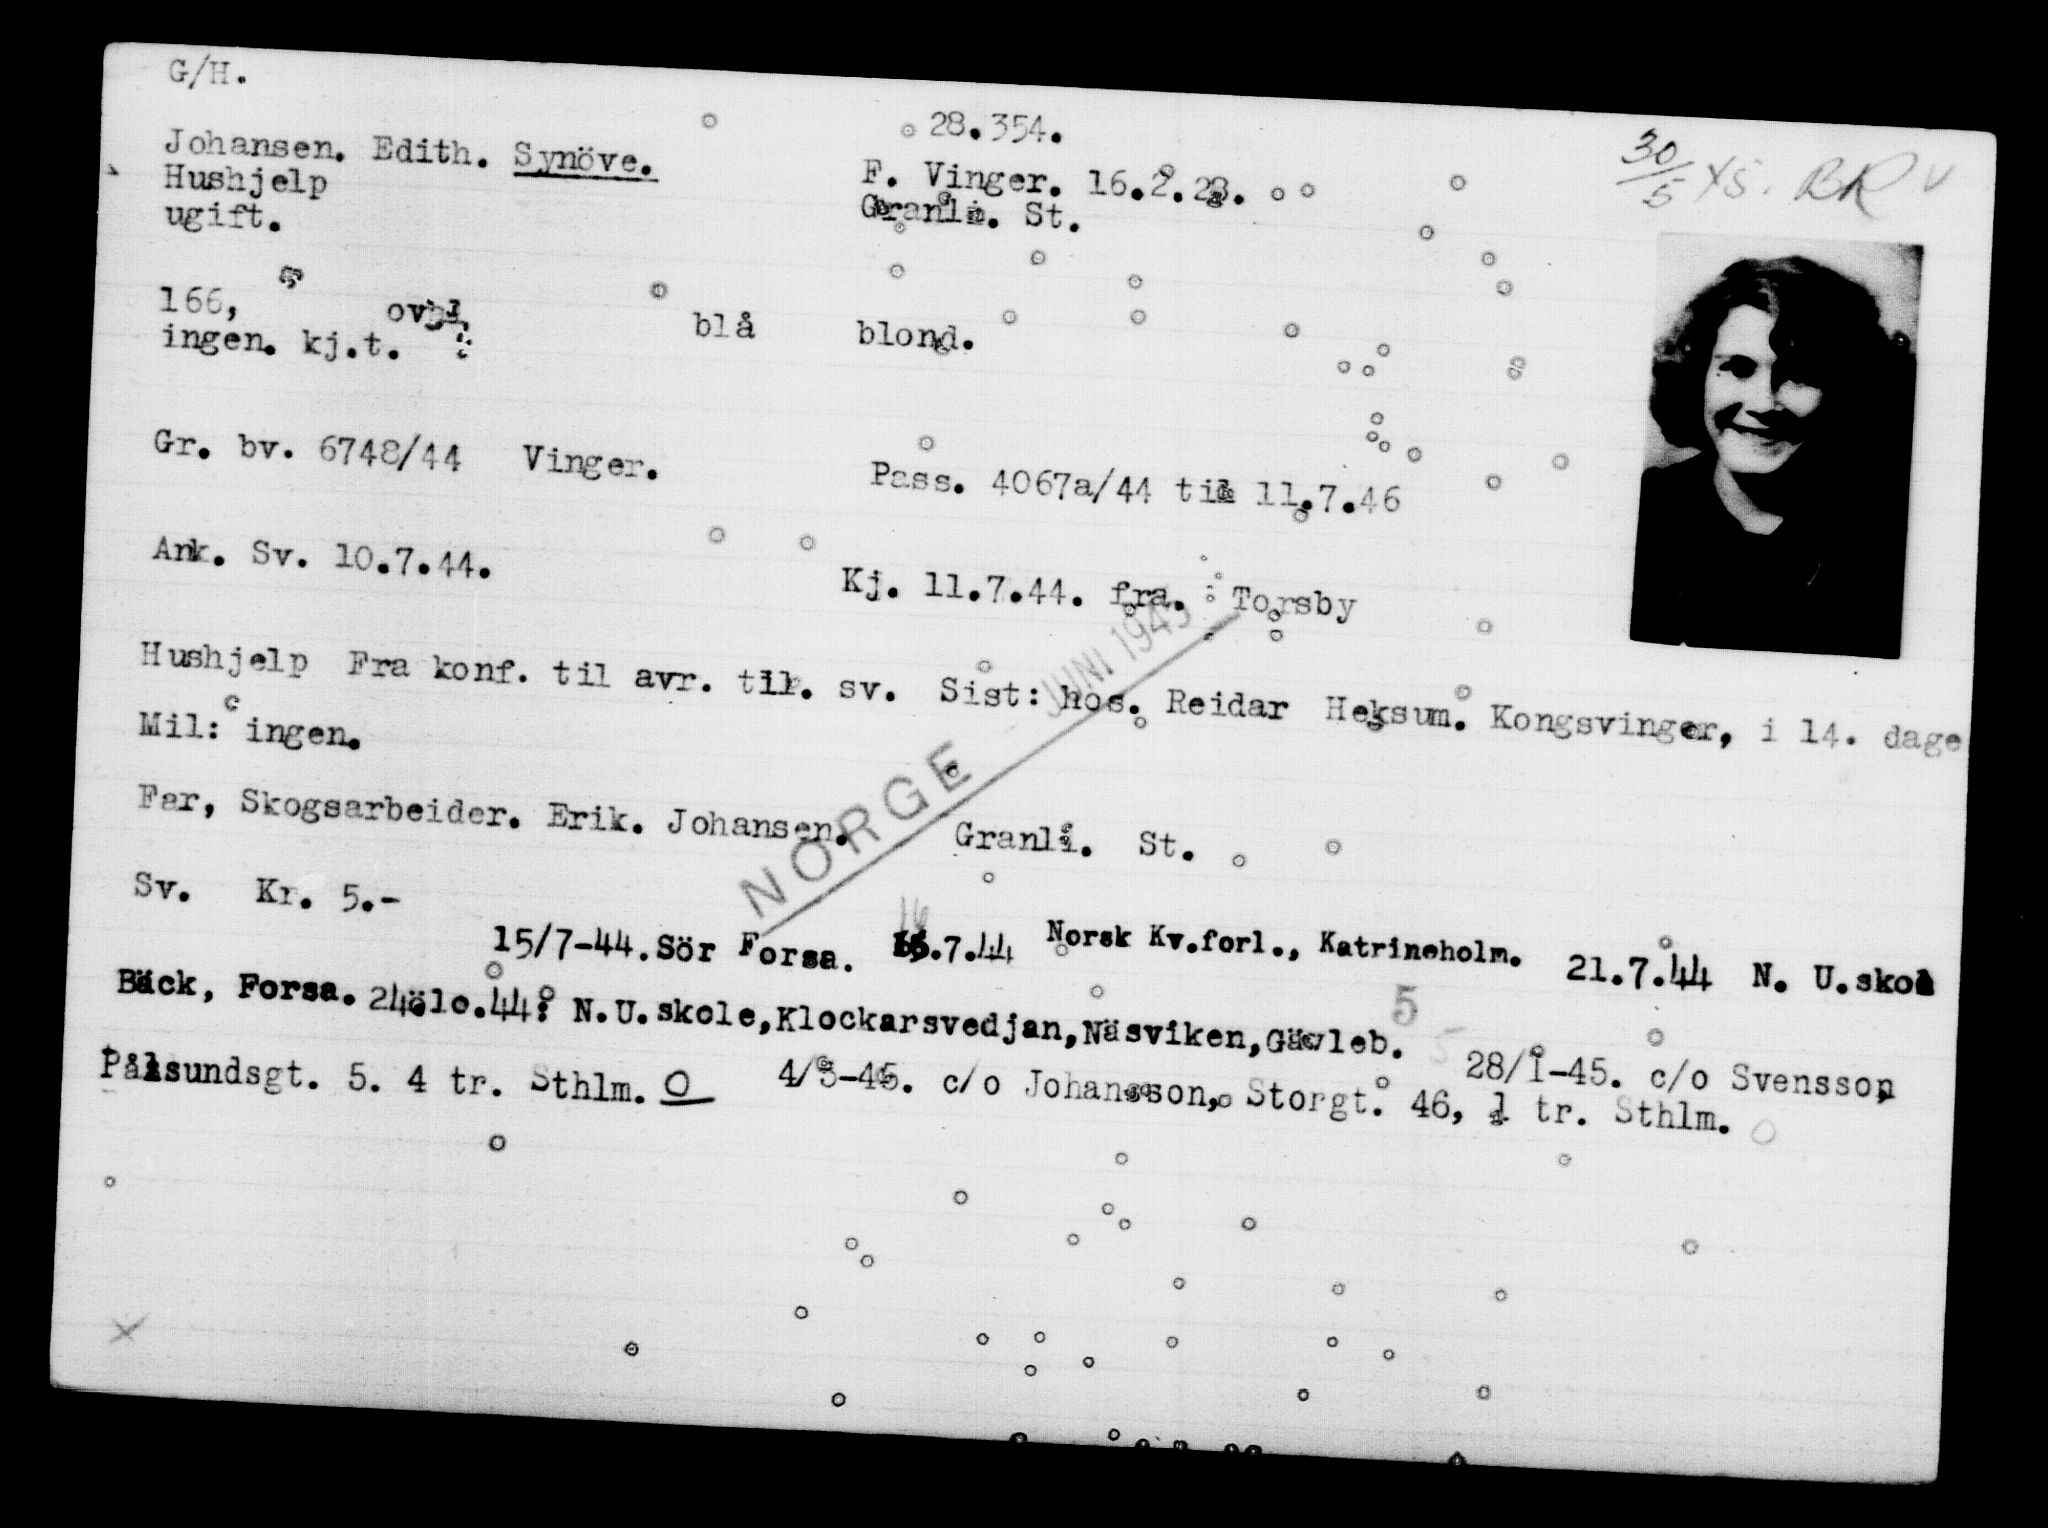 G/H.
28.354.
30/5 45. BR V
Johansen. Edith. Synöve.
F. Vinger. 16.2.28.
Hushjelp
Granli. St.
ugift.
166, oval, blå blond.
ingen. kj.t.
Gr. bv. 6748/44 Vinger. Pass. 4067a/44 til 11.7.46
Ank. Sv. 10.7.44. Kj. 11.7.44. fra. Torsby
Hushjelp Fra konf. til avr. til. sv. Sist: hos. Reidar Heksum. Kongsvinger, i 14. dage
Mil: ingen.
NORGE JUNI 1945
Far, Skogsarbeider. Erik. Johansen. Granli. St.
Sv. Kr. 5.-
16
15/7-44. Sör Forsa. .7.44 Norsk Kv.forl., Katrineholm. 21.7.44 N. U.skol
Bäck, Forsa. 24.10.44: N.U.skole, Klockarsvedjan, Näsviken, Gävleb. 5 28/1-45. c/o Svensson,
Pålsundsgt. 5. 4 tr. Sthlm. O 4/3-45. c/o Johansson, Storgt. 46, 1 tr. Sthlm. O